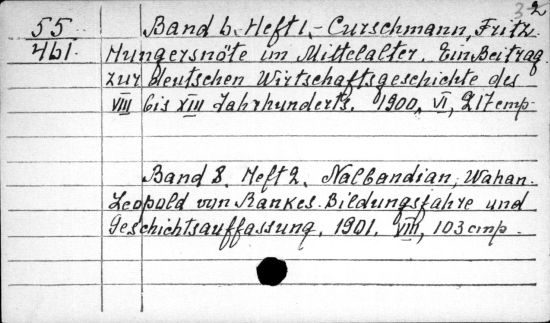 32
55 Band 6. Heft 1. - Curschmann, Fritz.
461. Hungersnöte im Mittelalter. Ein Beitrag
zur deutschen Wirtschaftsgeschichte des
VIII bis XIII Jahrhunderts. 1900. VI, 217 стр.
Band 8. Heft 2. Nalbandian, Wahan.
Leopold von Rankes Bildungsjahre und
Geschichtsauffassung. 1901. VIII, 103 стр.